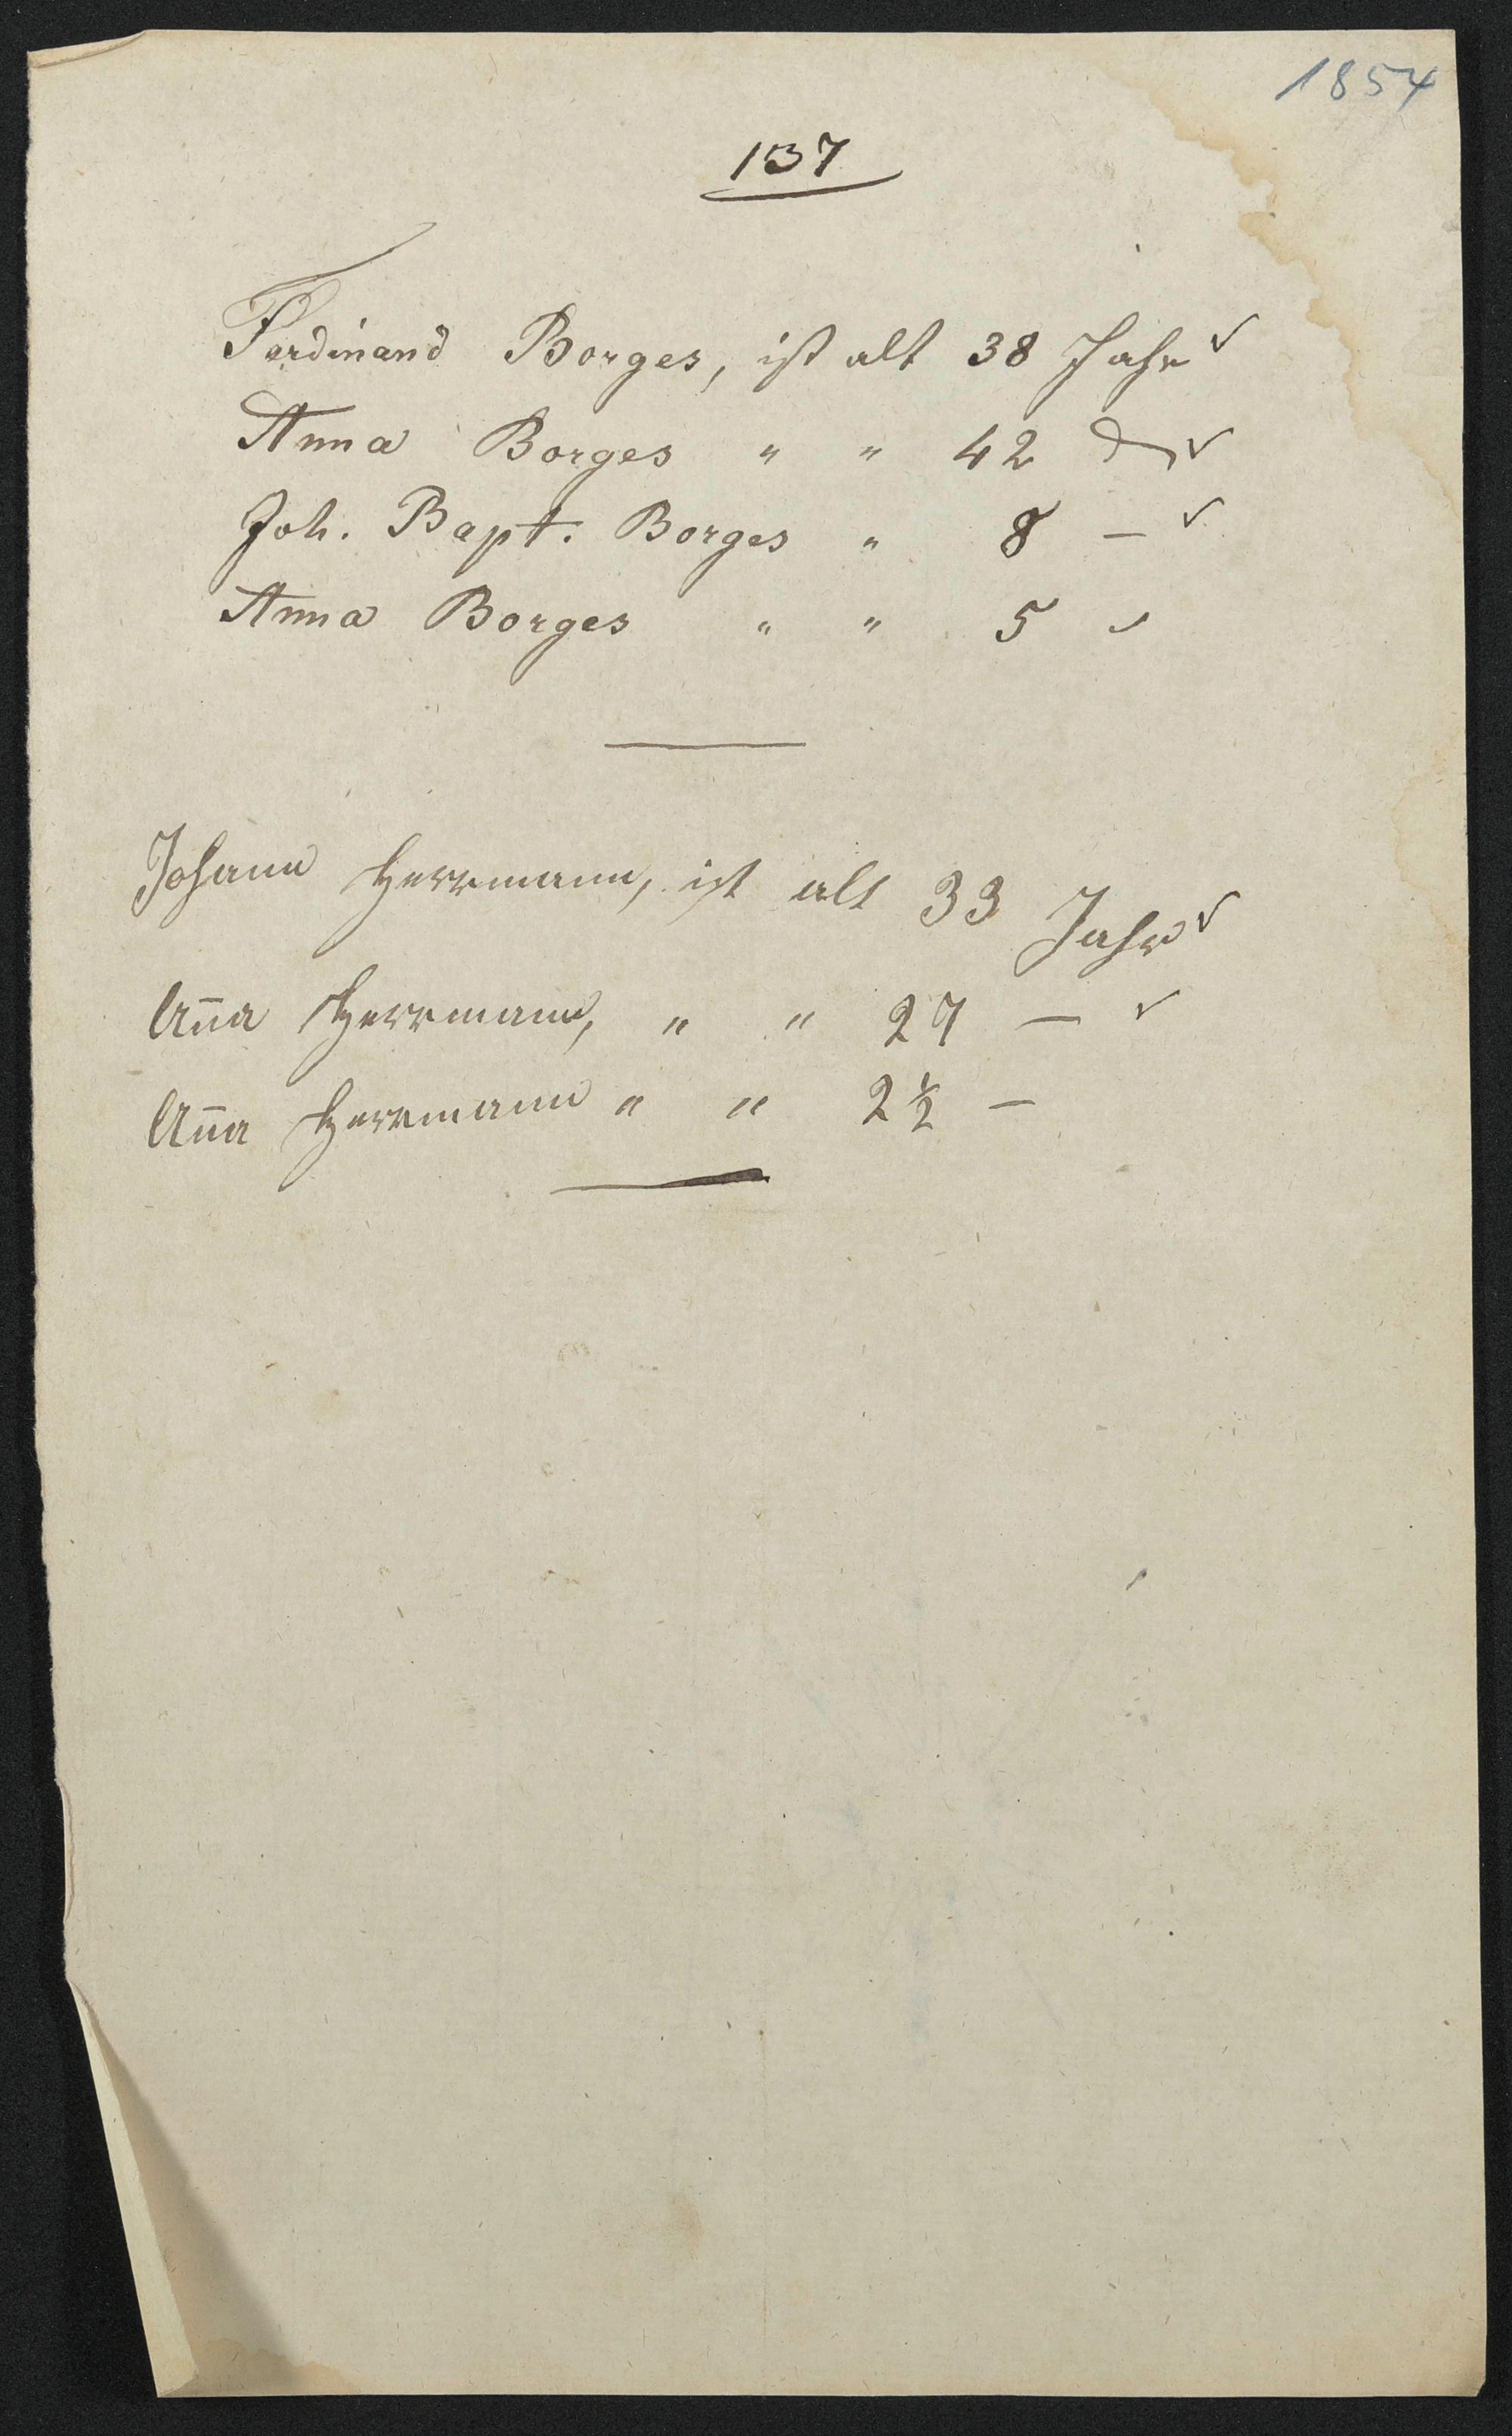 1854
137
Ferdinand Borges, ist alt 38 Jahr ✓
Anna Borges " " 42 ✓
Joh. Bapt. Borges " 8 — ✓
Anna Borges " " 5 ✓
Johann Herrmann, ist alt 33 Jahr ✓
An̄a Herrmann, " " 27 — ✓
An̄a Herrmann " " 2½ —